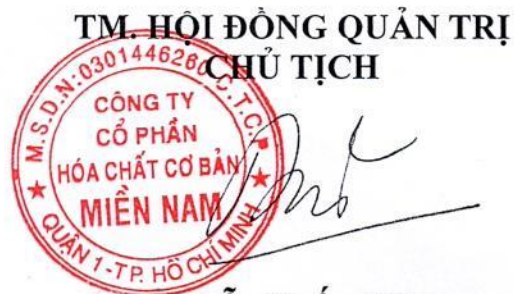 TM. HỘI ĐỒNG QUẢN TRỊ
CHỦ TỊCH
M.S.D.N:0301446260-C.T.C.P
CÔNG TY
CỔ PHẦN
HÓA CHẤT CƠ BẢN
MIỀN NAM
QUẬN 1-TP. HỒ CHÍ MINH